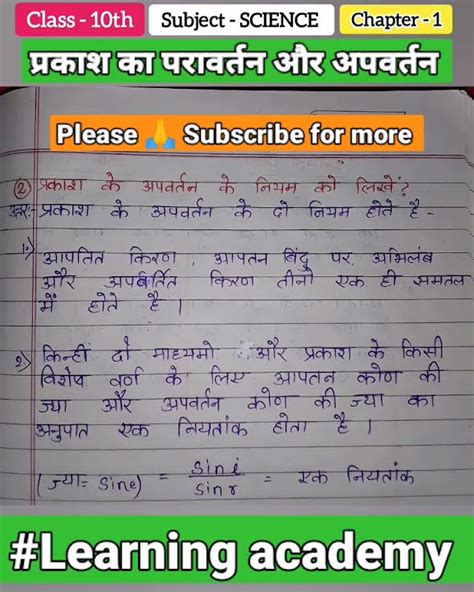 Class - 10th Subject - SCIENCE Chapter - 1
प्रकाश का परावर्तन और अपवर्तन
Please 🙏 Subscribe for more
② प्रकाश के अपवर्तन के नियम को लिखें?
उत्तर:- प्रकाश के अपवर्तन के दो नियम होते है -
1> आपतित किरण, आपतन बिंदु पर अभिलंब
और अपवर्तित किरण तीनो एक ही समतल
में होते है ।
2> किन्हीं दो माध्यमो और प्रकाश के किसी
विशेष वर्ण के लिए आपतन कोण की
ज्या और अपवर्तन कोण की ज्या का
अनुपात एक नियतांक होता है ।
(ज्या = Sine) = Sin i / Sin r = एक नियतांक
#Learning academy